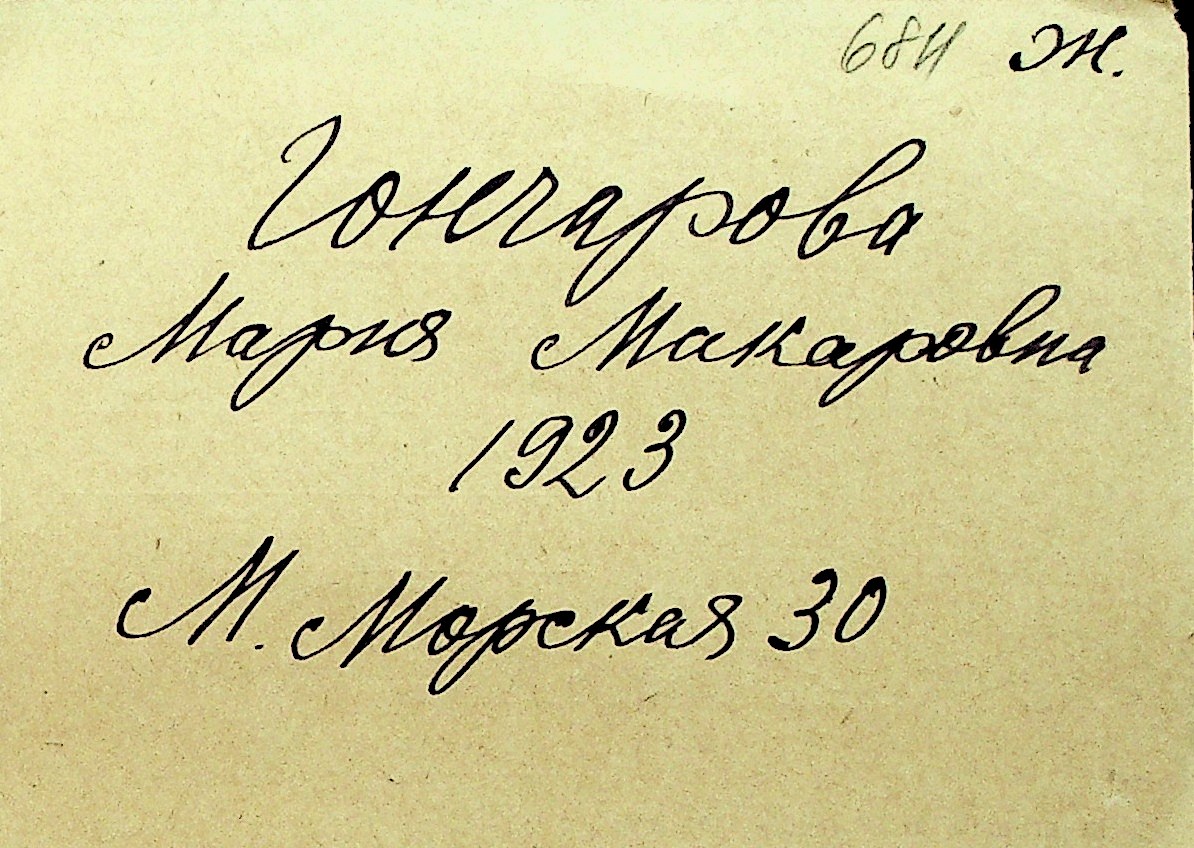 684 Ж.
Гончарова
Мария Макаровна
1923
М. Морская 30